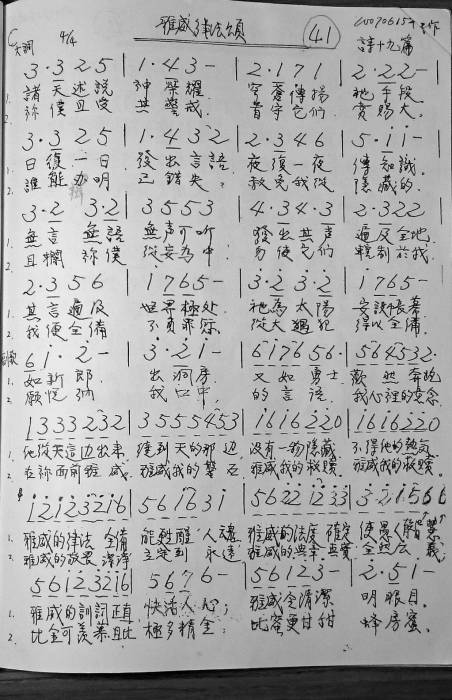 雅威律法頌 41
C 4/4 詩十九篇
3·3 2 5 1·4 3 - 2·1 7 1 2·2 2 -
1. 諸天述說 神榮耀 穹蒼傳揚 祂手段
2. 祢僕且受 共警戒 皆守它們 賞賜大。
3·3 2 5 1·4 3 2 2·3 4 6 5·i i -
1. 日復一日 發出言語 夜復一夜 傳知識。
2. 誰能辨明 己錯失? 赦免我從 隱藏的。
3·2 3·2 3 5 5 3 4·3 4·3 2·3 2 2
1. 無言無語 無聲可听 發出共声 遍及全地
2. 且攔祢僕 從妄為中 勿使它們 轄制於我
2·3 5 6 1 7 6 5 - 3·2 3·2 1 7 6 5 -
1. 其言遍及 世界極处 祂為太陽 安設帳幕
2. 我便全備 不負罪 從大過犯 得以全備。
副歌 6 1·2 - 3·2 1 - 6 1 7 6 5 6· 5 6 4 5 3 2
1. 如新郎 出洞房 又如勇士 歡然奔跑
2. 願悅納 我口中 的言語 我心裡的意念
1 3 3 3 2 3 2 3 5 5 5 4 5 3 1 6 1 6 2 2 0 1 6 1 6 2 2 0
他從天這边出來 達到天的那边 没有一物隱藏 不得他的熱氣
在祢面前雅威 雅威我的磐石 雅威我的救贖 雅威我的救贖。
1 2 1 2 3 2 1 6 5 6 1 6 3 1 5 6 2 2 1 2 3 3 3·2 1 5 6 6
1. 雅威的律法全備 能甦醒人魂 雅威的法度確定 使愚人智慧
2. 雅威的敬畏潔淨 立定到永遠 雅威的典章真實 全然公義
5 6 1 2 3 2 1 6 5 6 7 6 - 5 6 1 2 3 - 2·5 1 -
1. 雅威的訓詞正直 快活人心; 雅威令清潔 明眼目。
2. 比金可羨慕且比 極多精金; 比蜜更甘甜 蜂房蜜。